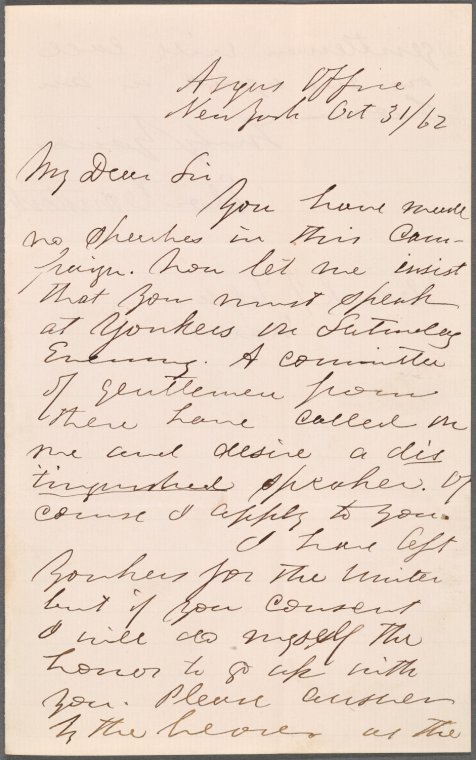 Argus Office
New York Oct 31/62
My Dear Sir
You have made
no speeches in this Cam-
paign. Now let me insist
that you must speak
at Yonkers on Saturday
Evening. A committee
of gentlemen from
there have called on
me and desire a dis
tinguished speaker. Of
course I apply to you.
I have left
Yonkers for the Winter
but if you consent
I will do myself the
honor to go up with
you. Please answer
by the bearer as the